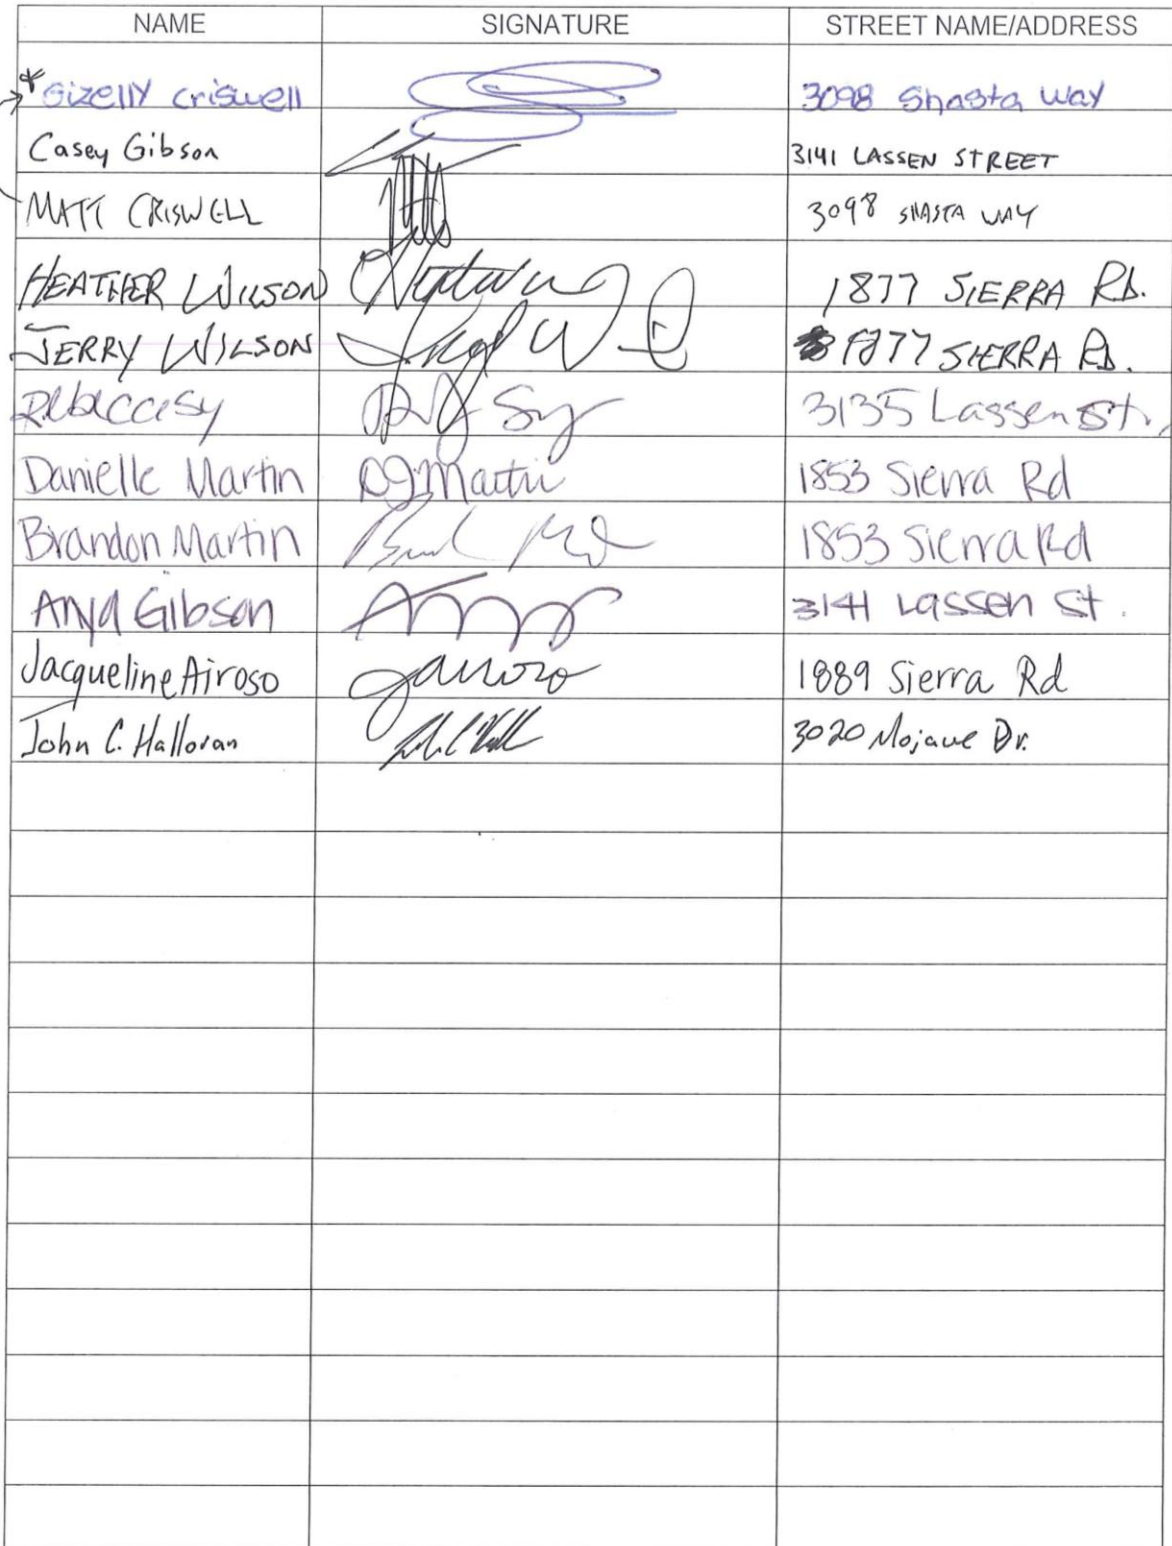 NAME SIGNATURE STREET NAME/ADDRESS
* Gizelly Criswell 3098 Shasta Way
Casey Gibson 3141 LASSEN STREET
MATT CRISWELL 3098 SHASTA WAY
HEATHER WILSON 1877 SIERRA RD.
JERRY WILSON 1877 SIERRA RD.
Rebecca Sy 3135 Lassen St.
Danielle Martin DJMartin 1853 Sierra Rd
Brandon Martin 1853 Sierra Rd
Anya Gibson 3141 Lassen St.
Jacqueline Airoso 1889 Sierra Rd
John C. Halloran 3020 Mojave Dr.